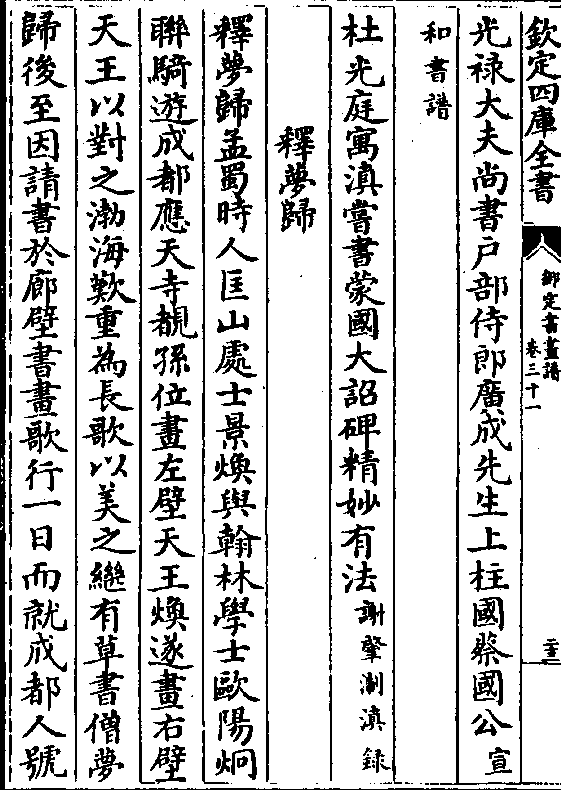 欽定四庫全書
御定書畫譜
卷三十一
二十三
光祿大夫尚書户部侍郎廣成先生上柱國蔡國公宣
和書譜
杜光庭寓滇嘗書蒙國大詔碑精妙有法謝肇淛滇録
釋夢歸
釋夢歸孟蜀時人匡山處士景煥與翰林學士歐陽炯
聯騎遊成都應天寺覩孫位畫左壁天王煥遂畫右壁
天王以對之渤海歎重為長歌以美之繼有草書僧夢
歸後至因請書於廊壁書畫歌行一日而就成都人號